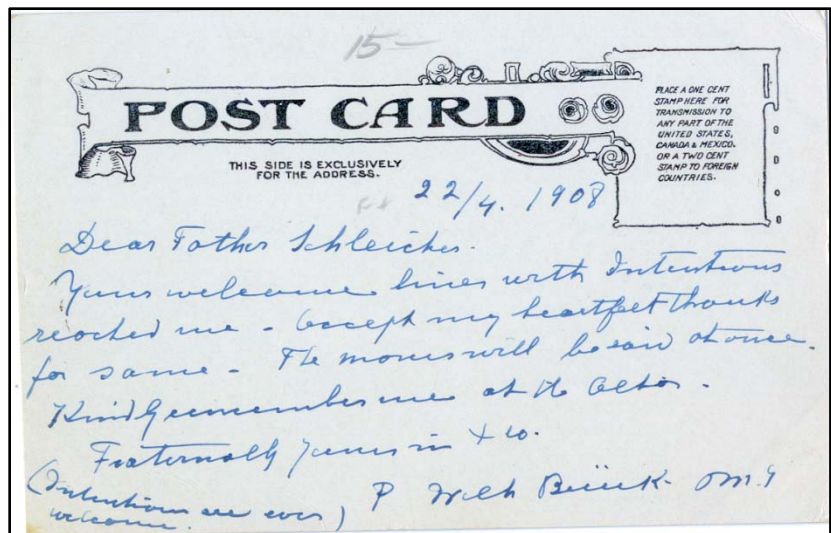 15-
POST CARD
THIS SIDE IS EXCLUSIVELY
FOR THE ADDRESS.
PLACE A ONE CENT
STAMP HERE FOR
TRANSMISSION TO
ANY PART OF THE
UNITED STATES,
CANADA & MEXICO.
OR A TWO CENT
STAMP TO FOREIGN
COUNTRIES.
22/4. 1908
Dear Father Schleicher.
Yours welcome lines with Intentions
reached me - accept my heartfelt thanks
for same - The will be said at once.
Kindly remember me at the Altar.
Fraternally yours in
(Intentions are ever)
welcome.
P Wilh